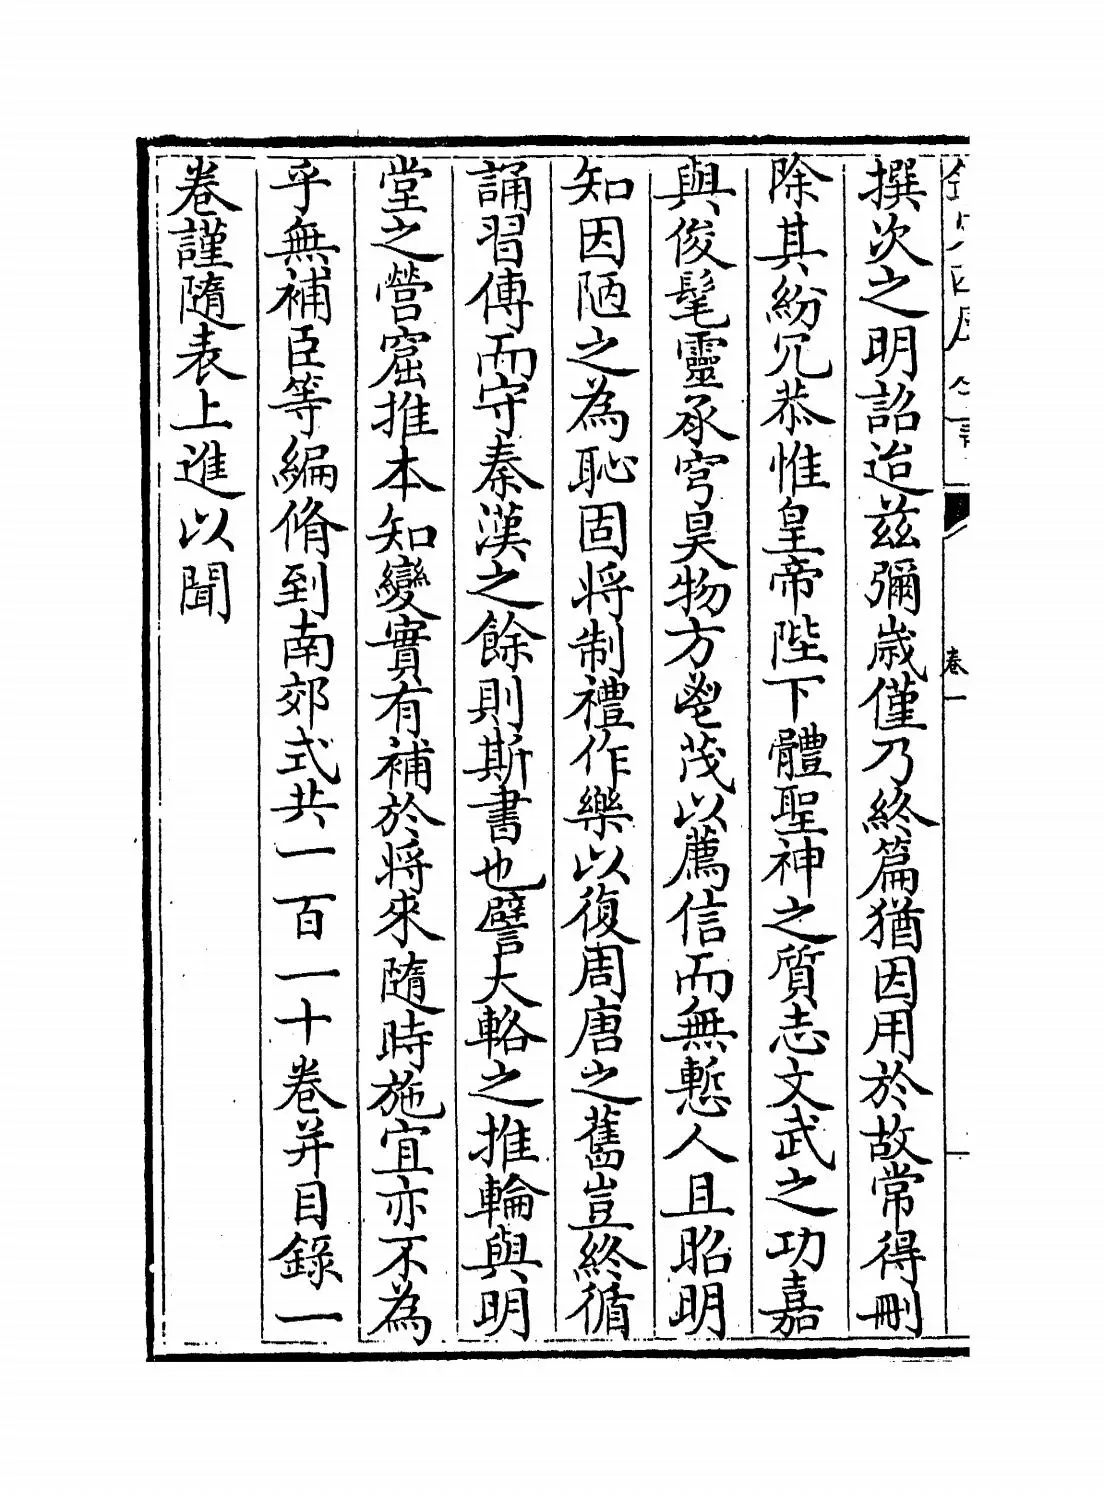 撰次之明詔迨茲彌歲僅乃終篇猶因用於故常得刪
除其紛冗恭惟皇帝陛下體聖神之質志文武之功嘉
與俊髦靈承穹昊物方鬯茂以薦信而無慙人且昭明
知因陋之為恥固将制禮作樂以復周唐之舊豈終循
誦習傳而守秦漢之餘則斯書也譬大輅之推輪與明
堂之營窟推本知變實有補於将來隨時施宜亦不為
乎無補臣等編脩到南郊式共一百一十卷并目錄一
卷謹隨表上進以聞
卷一